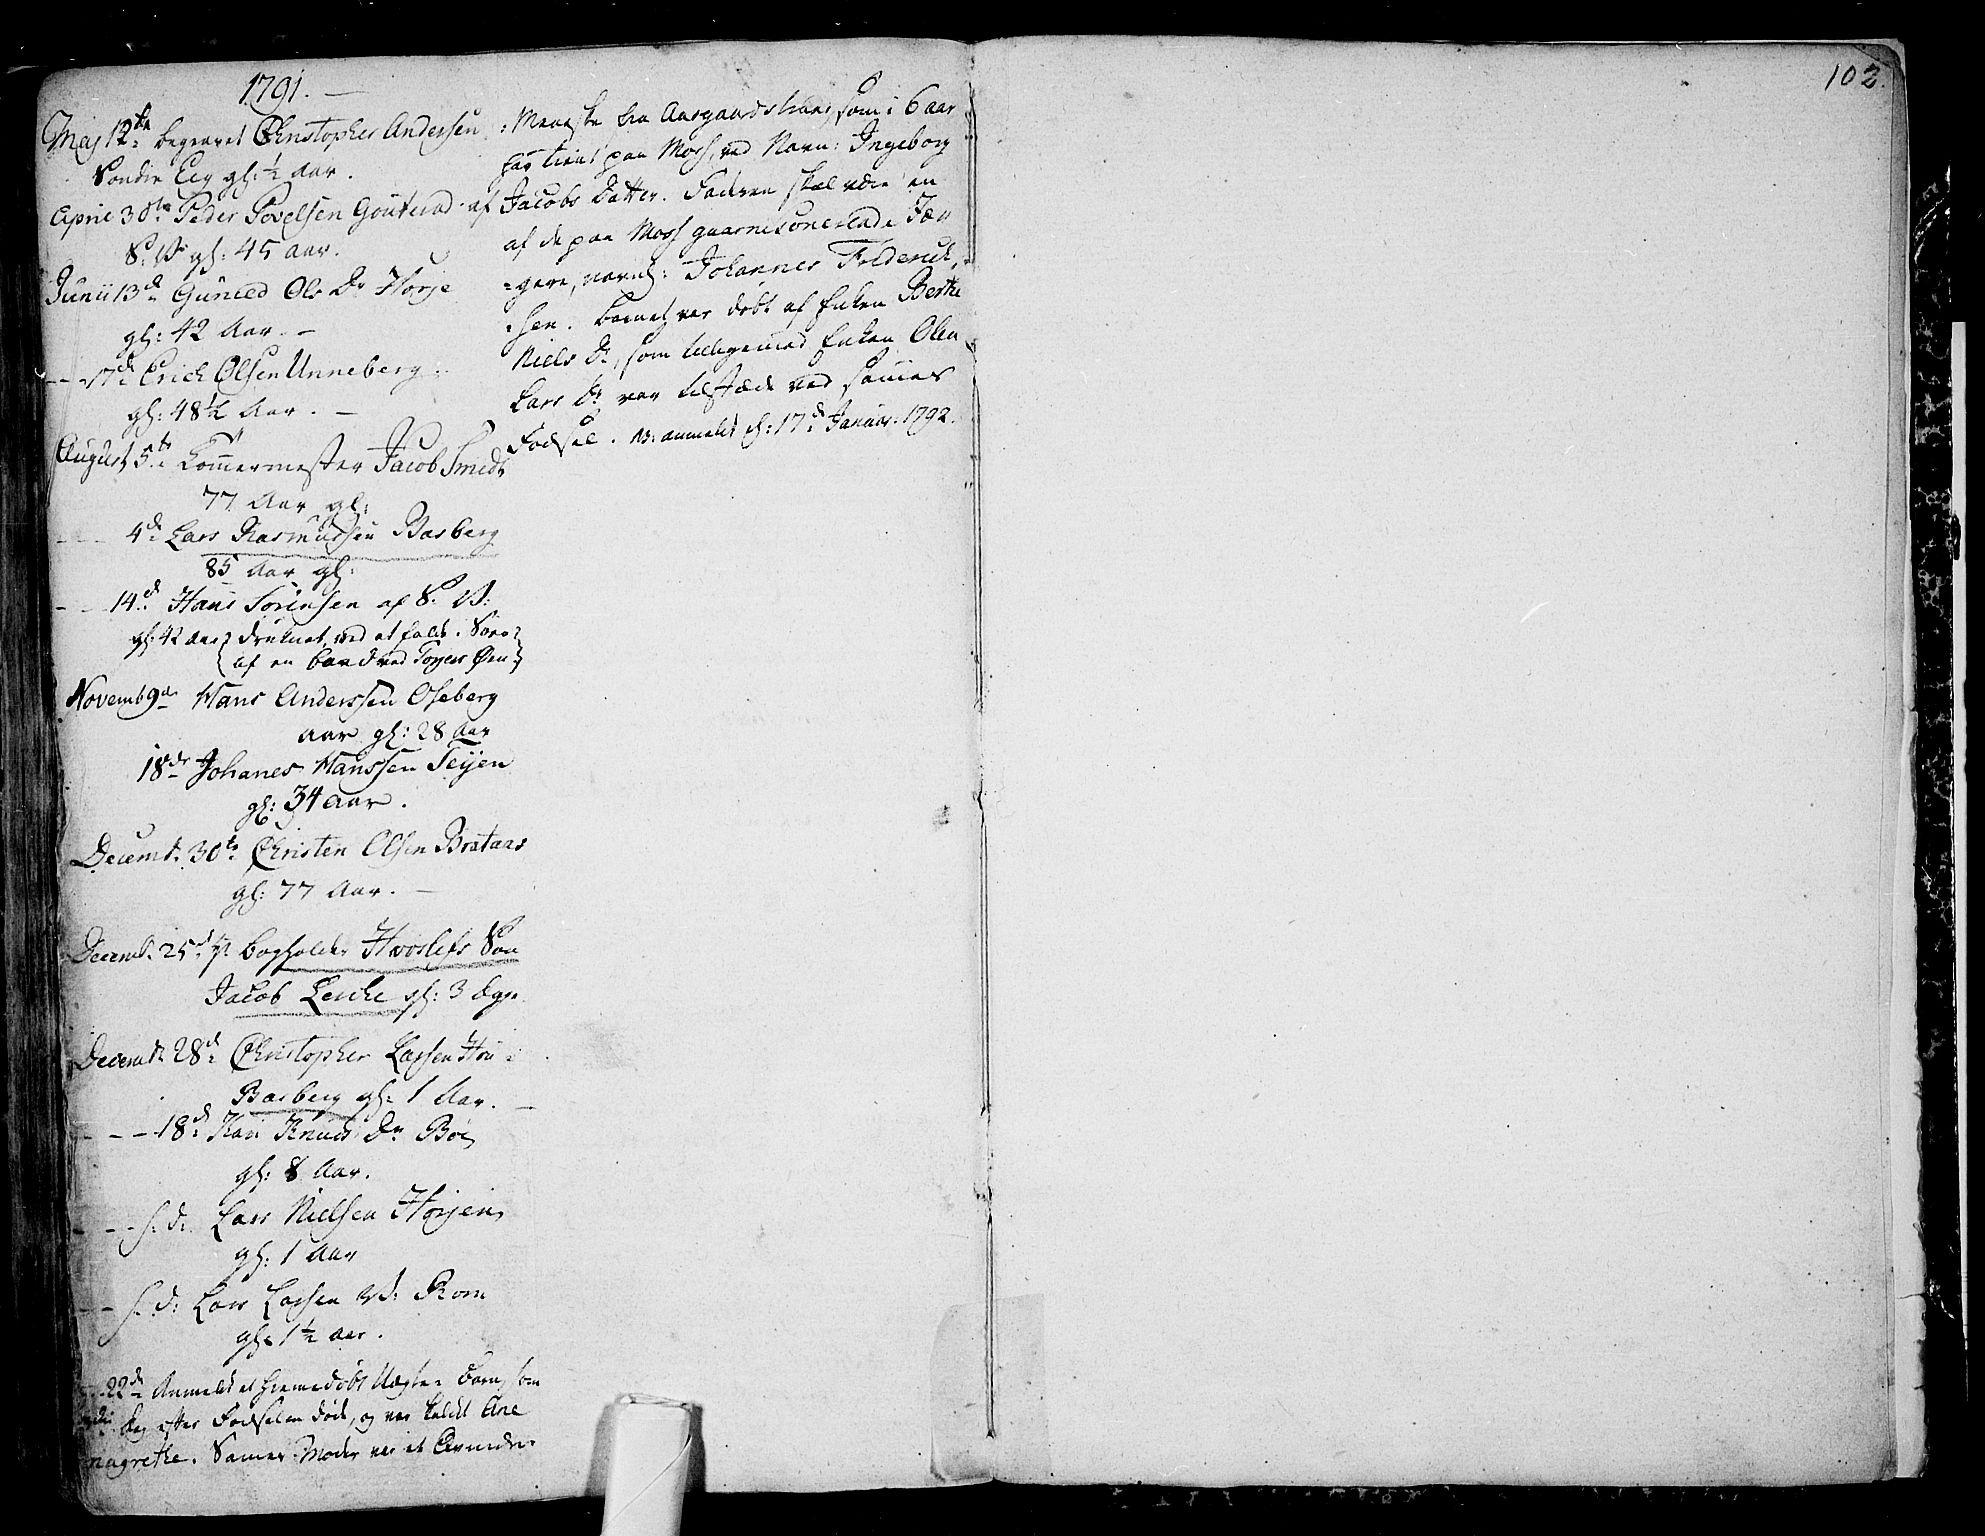 1791.
Maj 12te begravet Christopher Andersen
Søndre Eeg gl: 1/2 Aar.
April 30te Peder Povelsen Gouterød af
S: V: gl: 45 Aar.
Junii 13d Guneld Ols Dr Horje
gl: 42 Aar. -
- - 17d Erich Olsen Unneberg
gl: 48 1/2 Aar. -
August 5te Tømermester Jacob Smidt
77 Aar gl:
- - 4d Lars Rasmussen Basberg
85 Aar gl:
- - 14d Hans Sørensen af S. V:
gl: 42 Aar druknet ved at falde i Søen
af en Baad ved Øen
Novemb 9de Hans Anderssen Oseberg
Aar gl: 28 Aar
18de Johanes Hanssen Teijen
gl: 34 Aar.
Decembr. 30te Christen Olsen Brataas
gl: 77 Aar. -
Decembr. 25d Bogholder Hvoslefs Søn
Jacob Lerche gl: 3 dage
Decembr 28d Christopher Larsen
Basberg gl: 1 Aar. -
- - - 18d Kari Knuds Dr Bøe
gl: 8 Aar.
- - - s: d: Lars Nielsen Horjen
gl: 1 Aar
- - s: d: Lars Larsen V: Rom
gl: 1 1/2 Aar.
22d Anmeldt et hiemedøbt Uægte Barn, som
dag efter Fødselen døde, og var kaldet Ane
magrethe. Sammes Moder var et
Meneske fra Aasgaardstrand, som i 6 aar
har tient paa Moss, ved Navn: Ingeborg
Jacobs Datter. Faderen skal være en
af de paa Moss guarnisonerende Jæ-
gere, navnl: Johannes Frederich-
sen. Barnet var døbt af Enken Berthe
Niels Dr, som tilligemed Enken Olea
Lars Dr var tilstæde ved sammes
Fødsel. NB: anmeldt d: 17d Januar. 1792.
102.